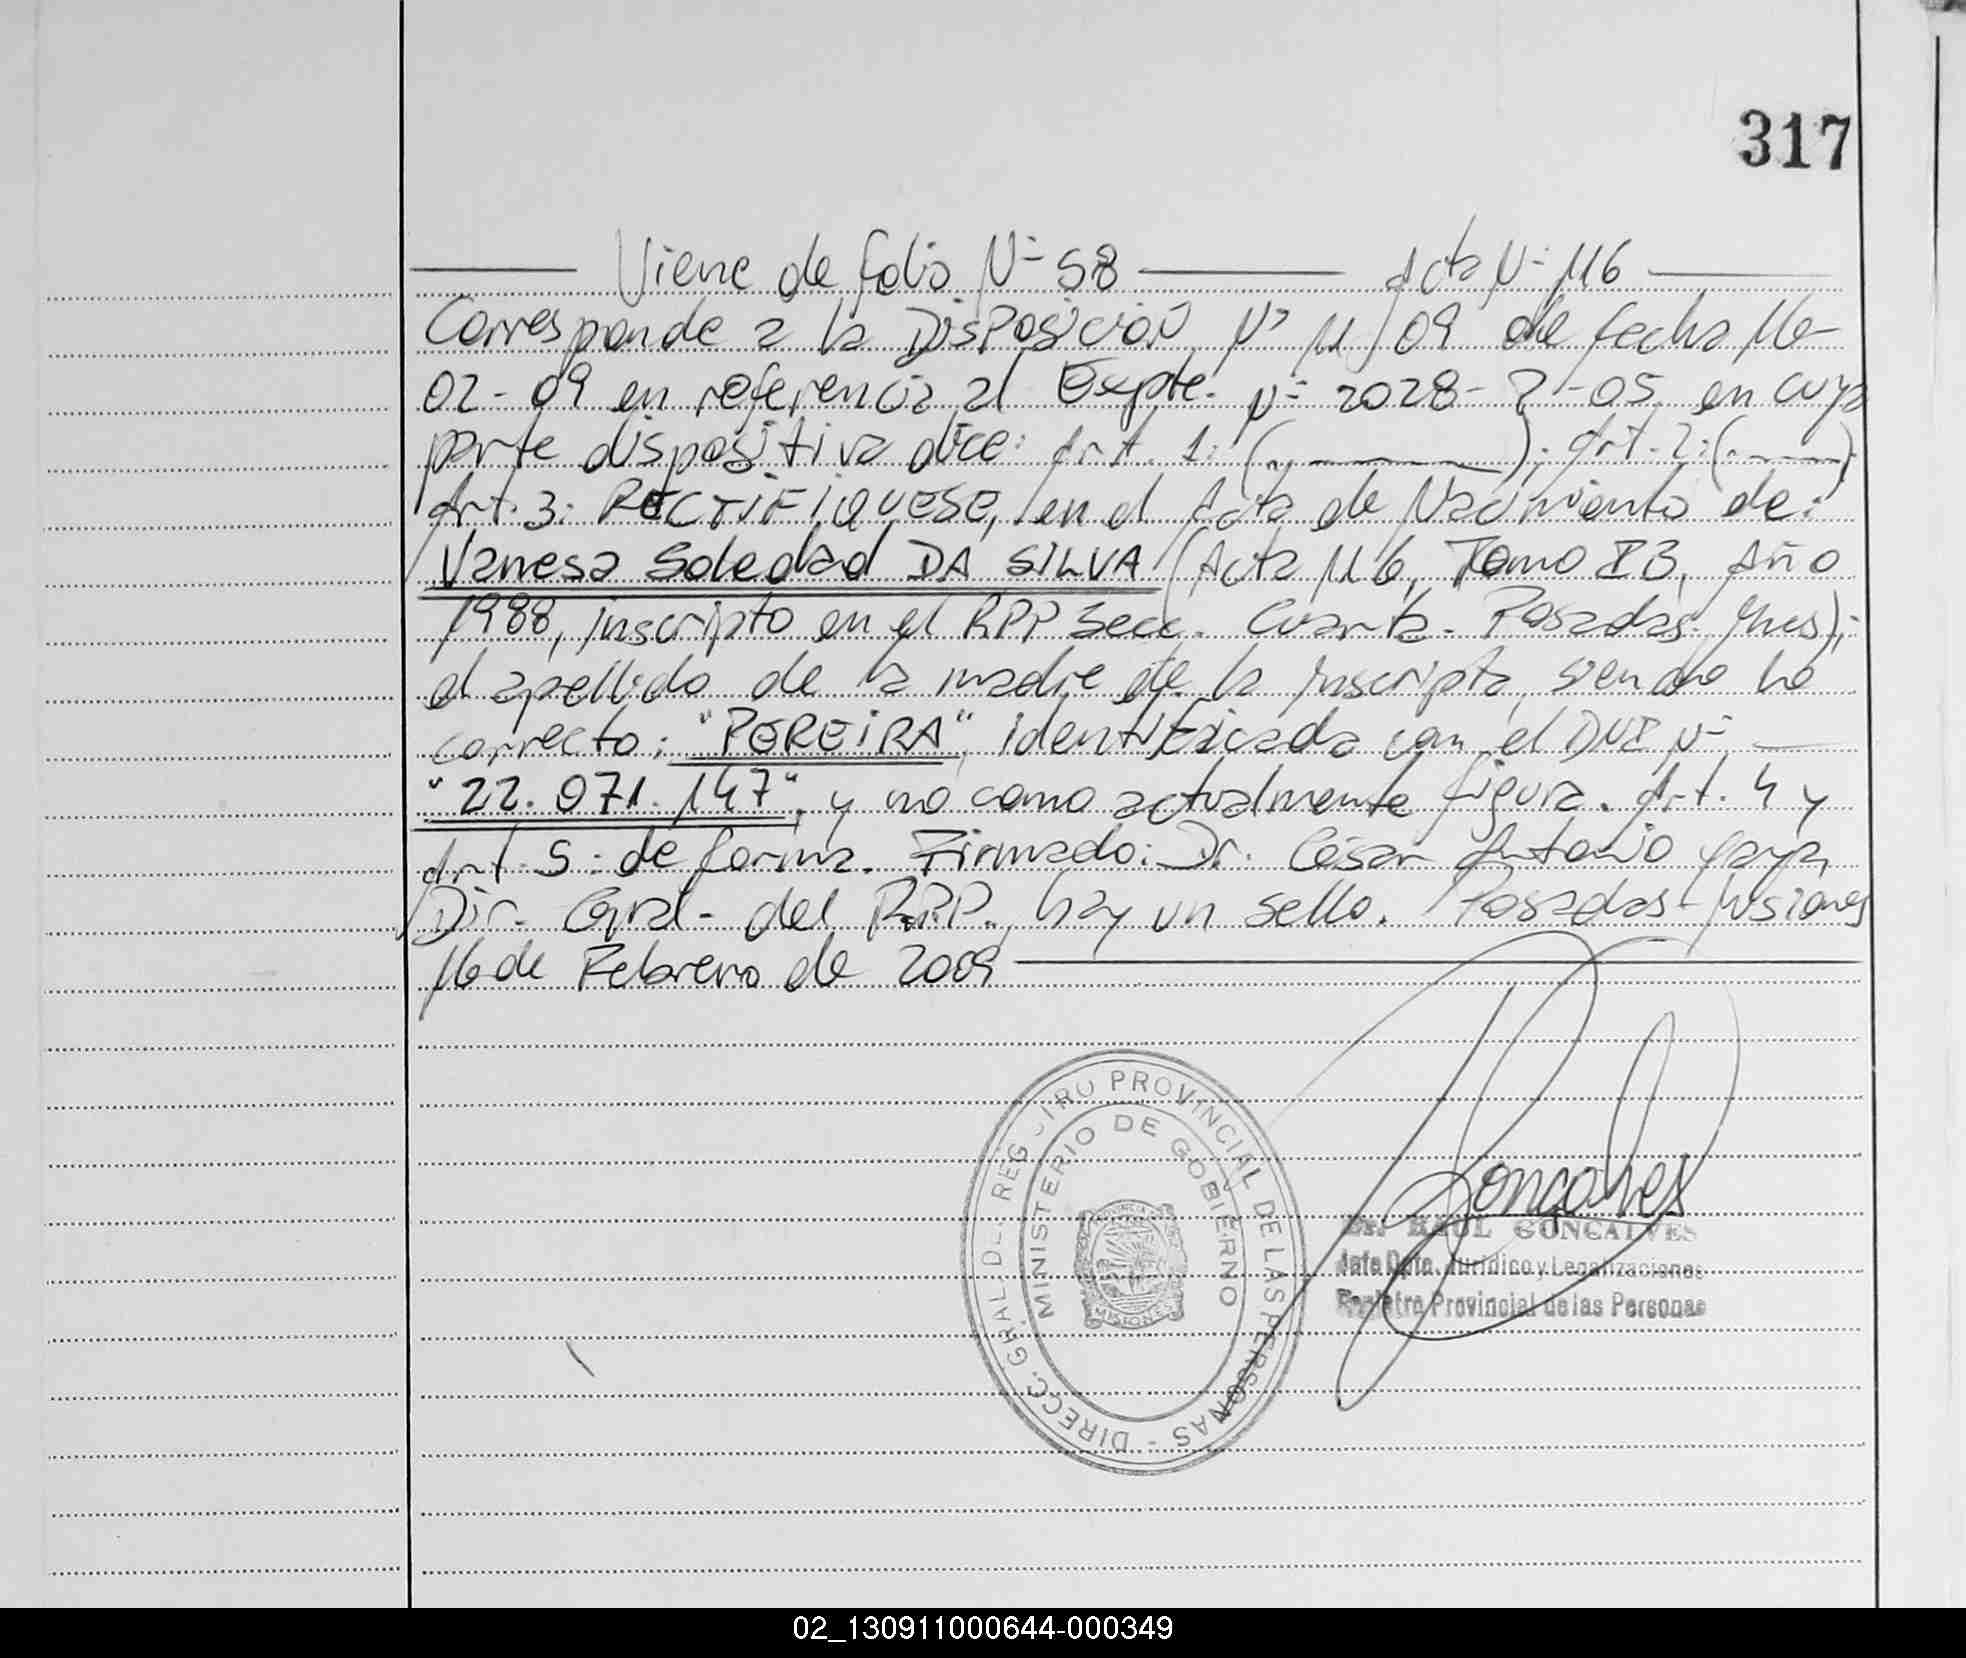 317
Viene de folio Nº 58 Acta Nº 116
Corresponde a la DISPOSICIÓN Nº 11/09 de fecha 16-
02-09 en referencia al Expte. Nº 2028-P-05 en cuya
parte dispositiva dice: Art. 1: ( ); Art. 2: ( );
Art. 3: RECTIFIQUESE, en el Acta de Nacimiento de:
Vanesa Soledad DA SILVA (Acta 116, Tomo I B, Año
1988, inscripto en el RPP Secc. Cuarta. Posadas. Mnes);
el apellido de la madre de la inscripta, siendo lo
correcto: "PEREIRA", identificada con el DNI Nº
"22.071.147", y no como actualmente figura. Art. 4 y
Art. 5: de forma. Firmado: Dr. César Antonio
Dir. Gral. del R.P.P., hay un sello. Posadas Misiones
16 de Febrero de 2009
DIRECC. GRAL DEL REGISTRO PROVINCIAL DE LAS PERSONAS -
MINISTERIO DE GOBIERNO
PROVINCIA DE
MISIONES
Goncalves
Dr. RAUL GONCALVES
Jefe Dpto. Jurídico y Legalizaciones
Registro Provincial de las Personas
02_130911000644-000349